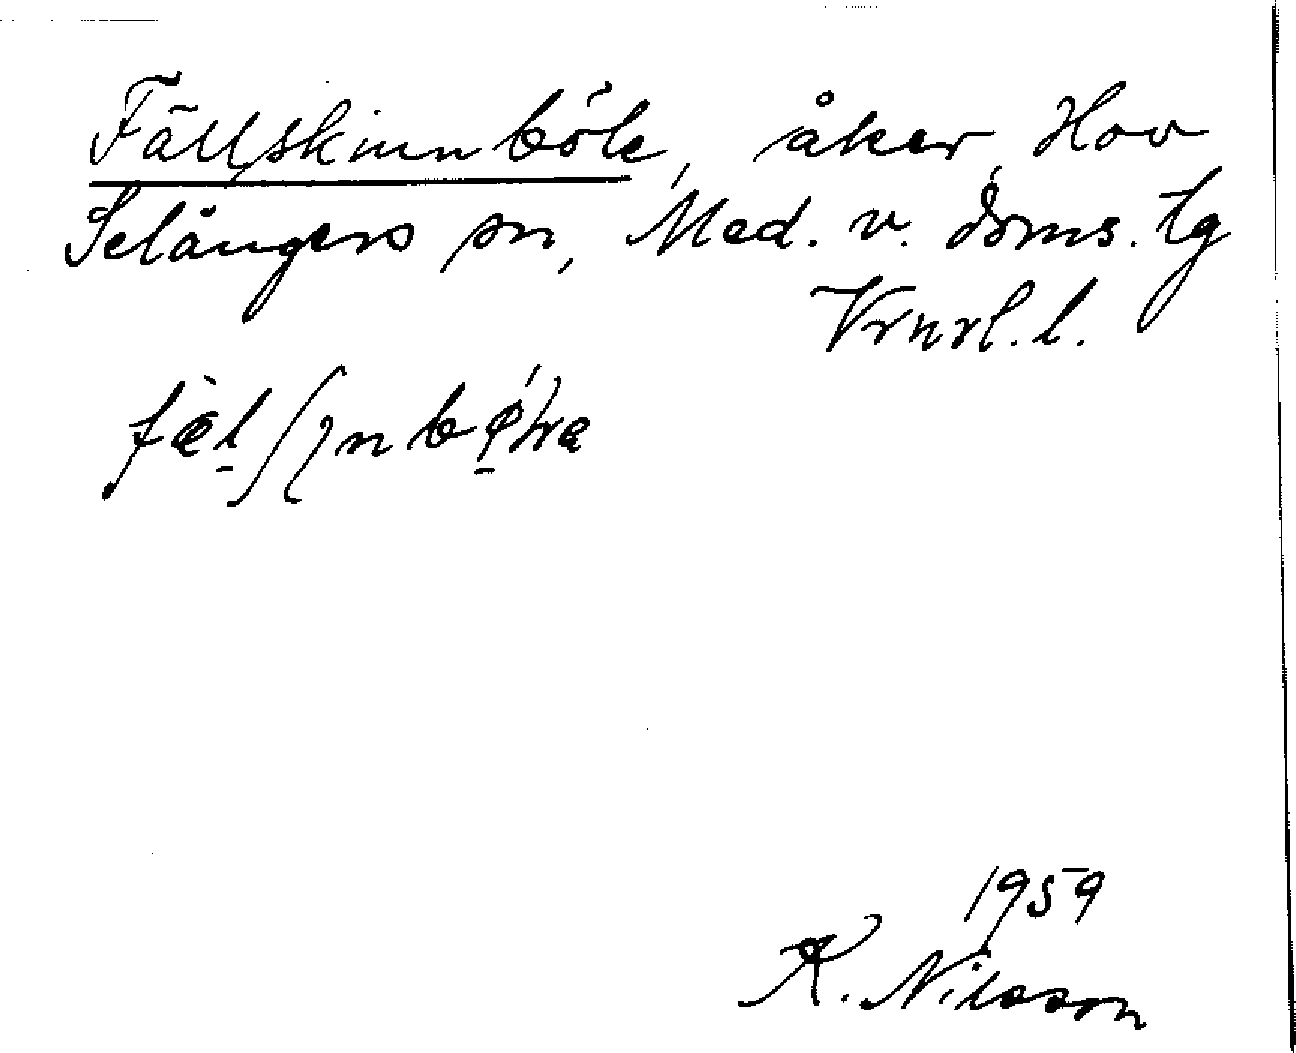 Fällskinnböle, åker, Hov
Selångers sn, Med. v. doms. tg
Vrnrl. l.
1959
K. Nilsson